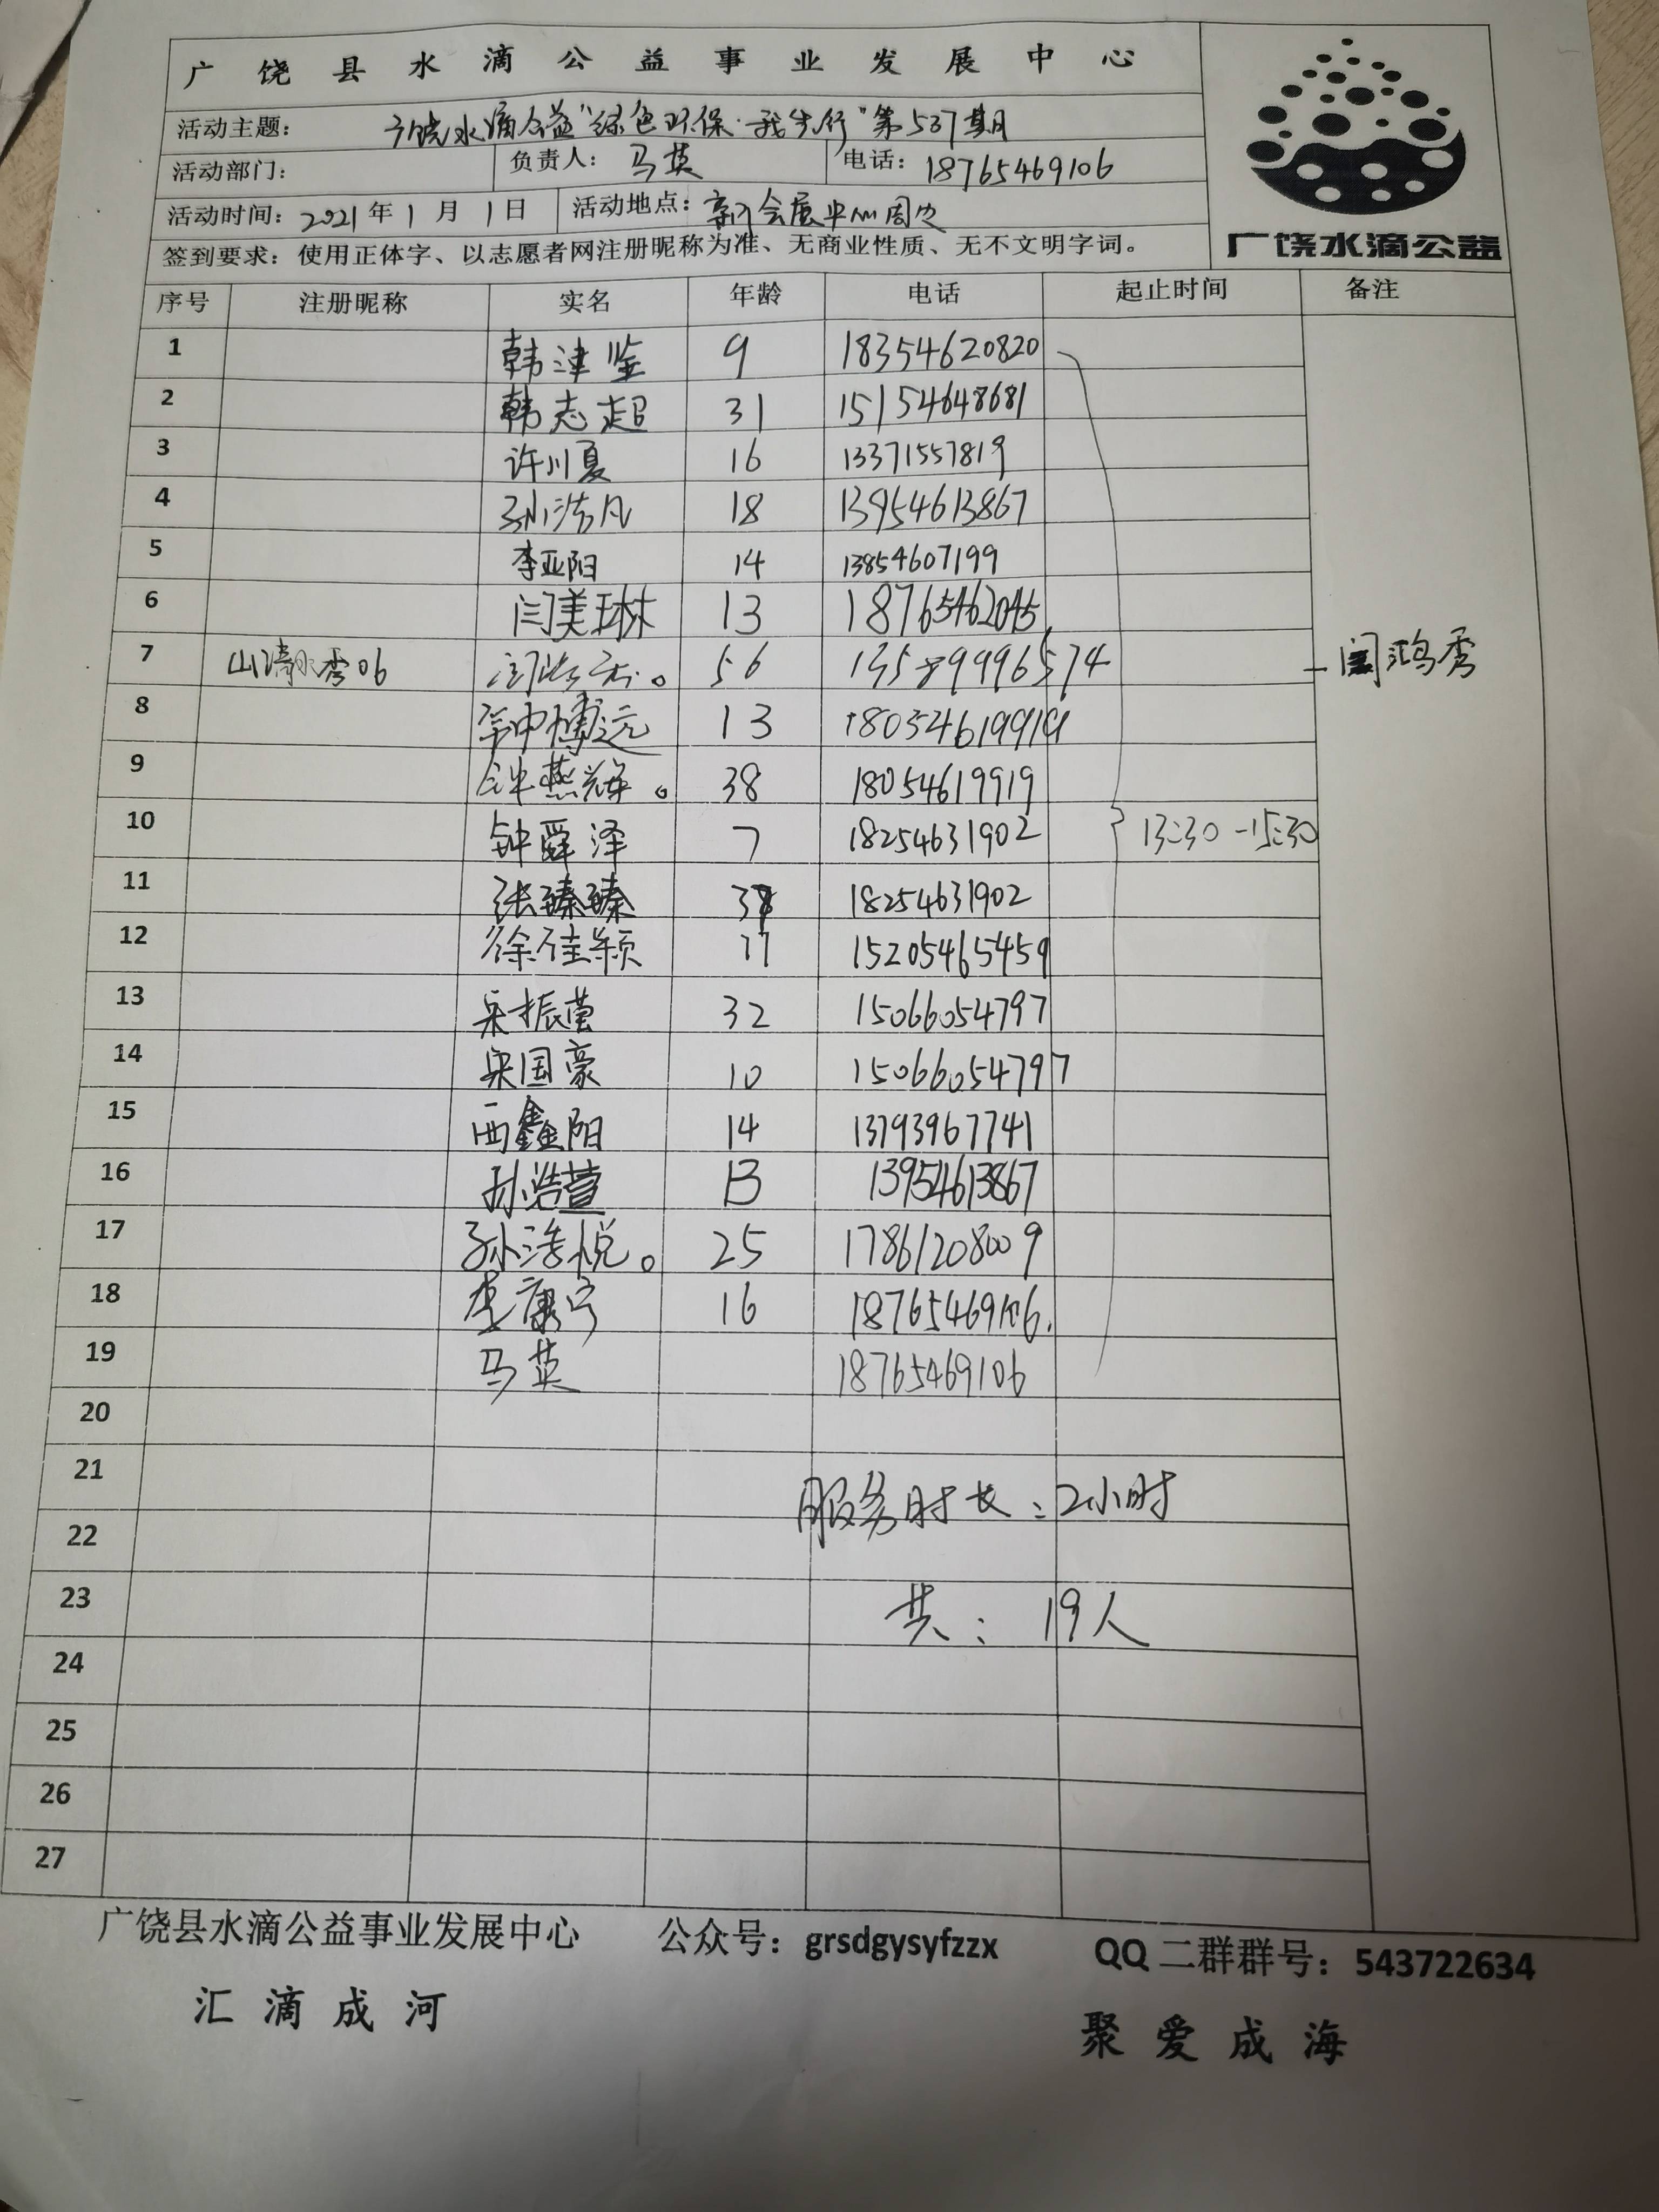 广饶县水滴公益事业发展中心
活动主题： 广饶水滴公益"绿色环保·我先行"第537期
活动部门： 负责人： 马英 电话：18765469106
活动时间：2021年1月1日 活动地点：新会展中心周边
签到要求：使用正体字、以志愿者网注册昵称为准、无商业性质、无不文明字词。
广饶水滴公益
序号 注册昵称 实名 年龄 电话 起止时间 备注
1 韩津鉴 9 18354620820
2 韩志超 31 15154648681
3 许川夏 16 13371557819
4 孙浩凡 18 13954613867
5 李亚阳 14 13854607199
6 闫美琳 13 18765462045
7 山清水秀06 56 13589996574 闫鸿秀
8 13 18054619919
9 钟燕辉。 38 18054619919
10 钟舜泽 7 18254631902 13:30-15:30
11 张臻臻 18254631902
12 徐佳颖 17 15205465459
13 32 15066054797
14 国豪 10 15066054797
15 西鑫阳 14 13793967741
16 孙浩萱 13 13954613867
17 孙浩悦。 25 17861208009
18 李康宁 16 18765469106.
19 马英 18765469106
20
21 服务时长：2小时
22
23 共：19人
24
25
26
27
广饶县水滴公益事业发展中心 公众号：grsdgysyfzzx QQ二群群号：543722634
汇滴成河 聚爱成海